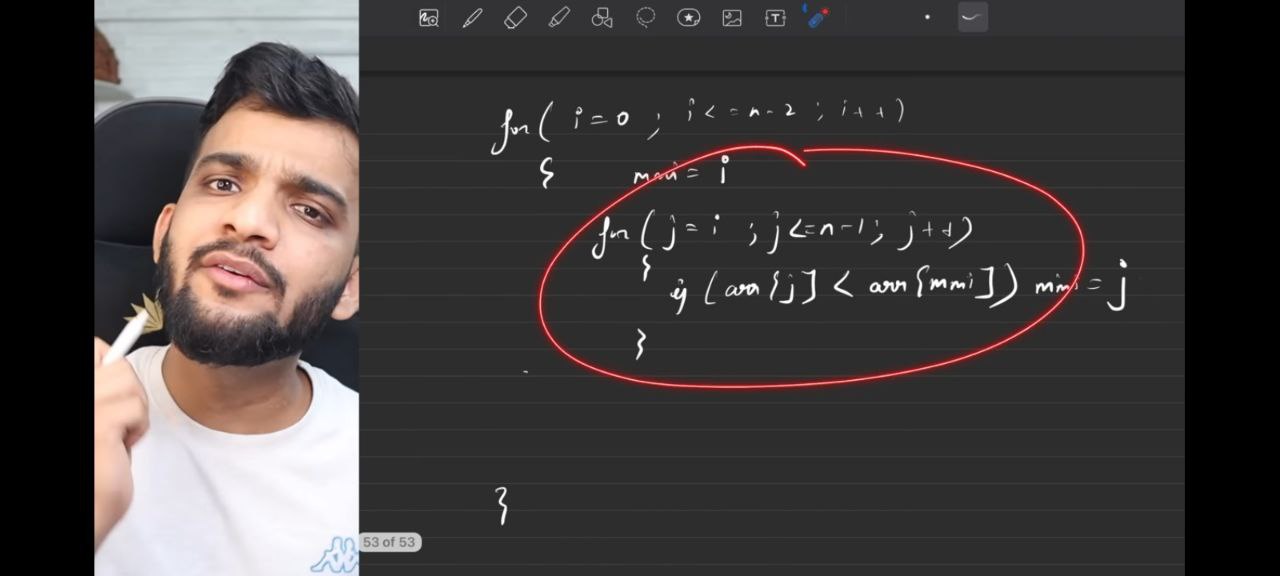 for( i=0 ; i<=n-2 ; i++)
{ mini = i
for( j=i ; j<=n-1; j++)
{
if (arr[j] < arr[mini]) mini = j
}
}
53 of 53